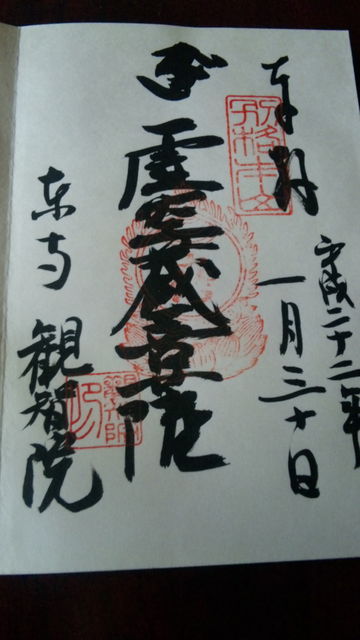 奉拝
別格本山
平成二十二年
一月三十日
虚空蔵菩薩
東寺
観智院